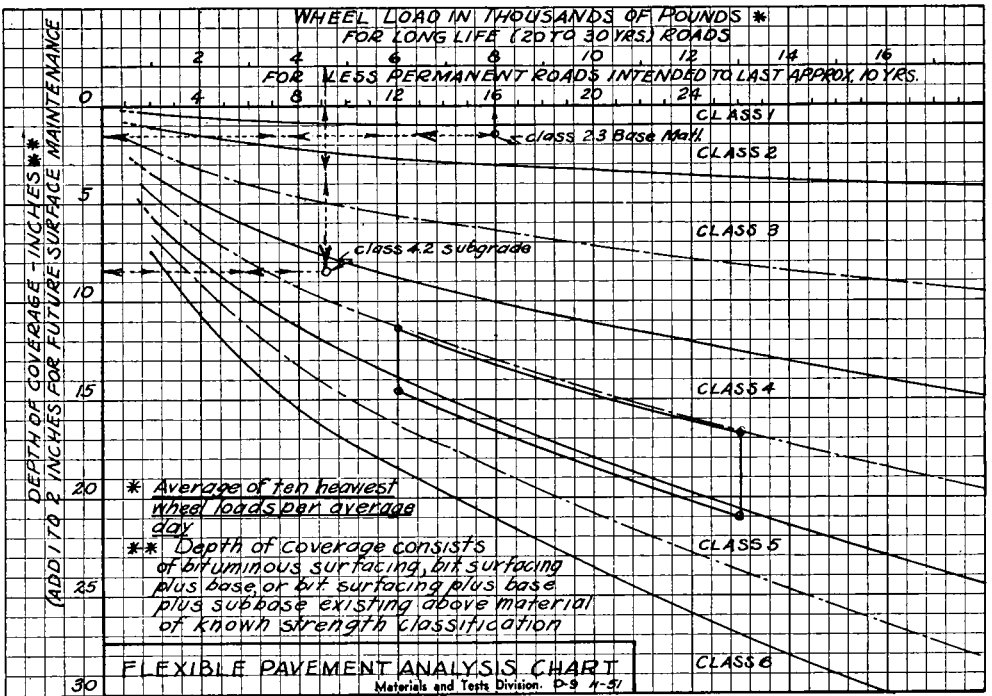 WHEEL LOAD IN THOUSANDS OF POUNDS *
FOR LONG LIFE (20 TO 30 YRS) ROADS
2 4 6 8 10 12 14 16
FOR LESS PERMANENT ROADS INTENDED TO LAST APPROX. 10 YRS.
4 8 12 16 20 24
DEPTH OF COVERAGE - INCHES **
(ADD 1 TO 2 INCHES FOR FUTURE SURFACE MAINTENANCE
0
5
10
15
20
25
30
CLASS 1
class 2.3 Base Matl.
CLASS 2
CLASS 3
class 4.2 subgrade
CLASS 4
CLASS 5
CLASS 6
* Average of ten heaviest
wheel loads per average
day
** Depth of coverage consists
of bituminous surfacing, bit surfacing
plus base, or bit. surfacing plus base
plus subbase existing above material
of known strength classification
FLEXIBLE PAVEMENT ANALYSIS CHART
Materials and Tests Division. D-9 11-51